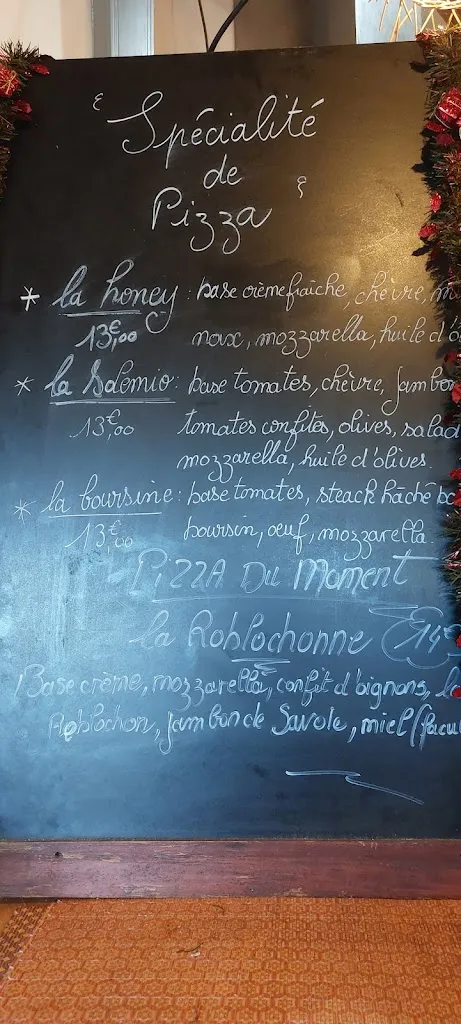 Spécialité
de
Pizza
* la honey : base crème fraîche, chèvre,
13€,00 noix, mozzarella, huile d'o
* la Salemio : base tomates, chèvre, jambon
13€,00 tomates confites, olives, salad
mozzarella, huile d'olives.
* la boursine : base tomates, steack hâché bo
13€,00 boursin, œuf, mozzarella.
PIZZA DU MOMENT
la Roblochonne 14€
Base crème, mozzarella, confit d'oignons,
Roblochon, jambon de Savoie, miel (facul